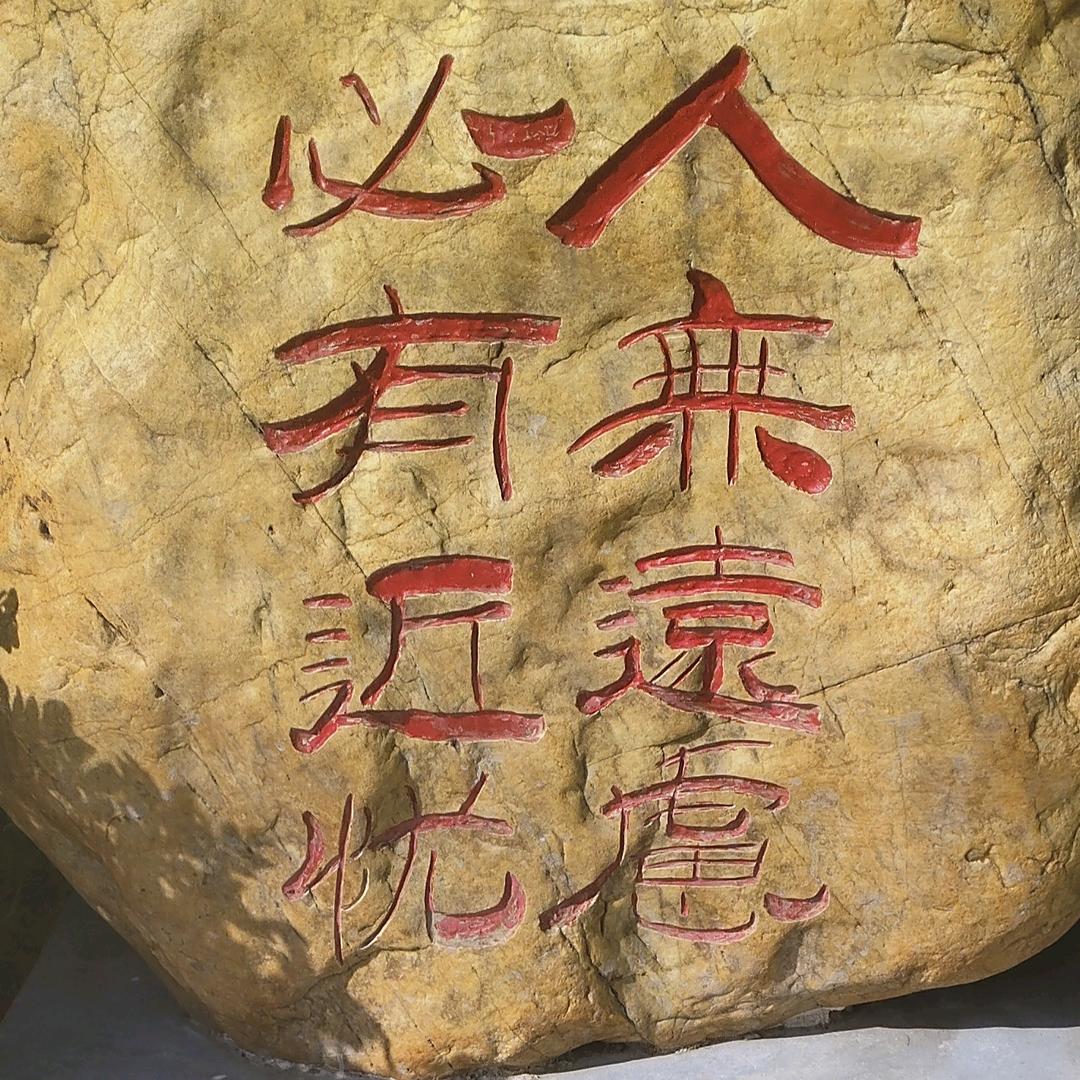 人無遠慮
必有近忧